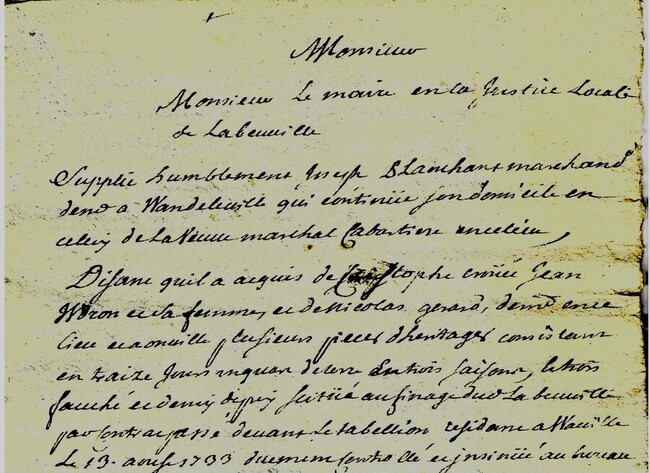 Monsieur
Monsieur Le maire en La Justice Locale
de Labeuville
Supplie humblement Joseph Blanchant marchand
demt a Wandeleville qui continue son domicile en
celuy de La Veuve marchal Cabartiere en ce lieu,
Disant quil a acquis de Christophe Jean
et sa femme, et de Nicolas gerard, demt en ce
lieu et a plusieurs pieces dheritages consistant
en traize Jours un quar de terre en trois saisons,
fauché et demy de prey scitué au finage dud Labeuville
par contrac passé devant Le tabellion residant a
Le 13. avril 1733 duement controllé et insinué au bureau